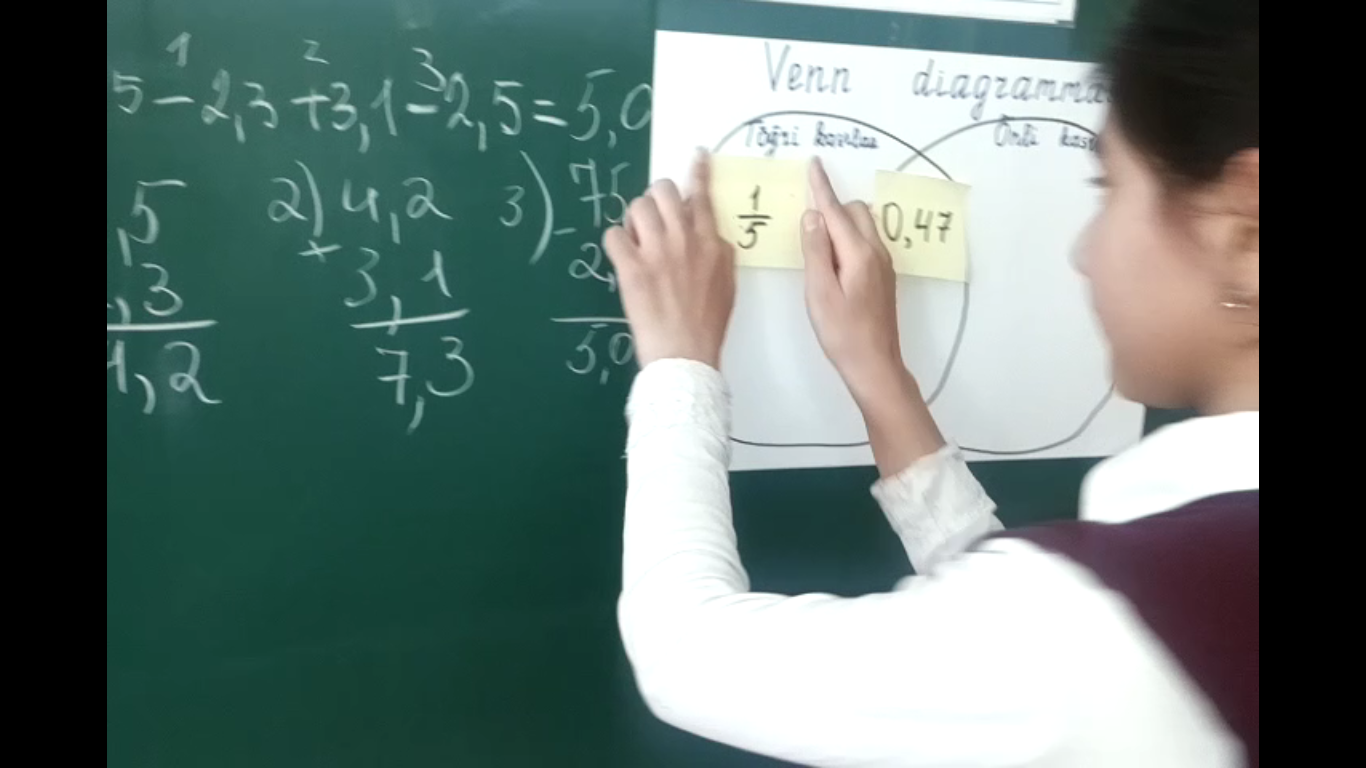 1 2 3
5-2,3+3,1-2,5=5,0
,5
,3
4,2
2) 4,2
+
3,1
7,3
3) -75
2,
5,0
Venn diagramma
Toğri kasrlar
Onli kas
1/5
0,47